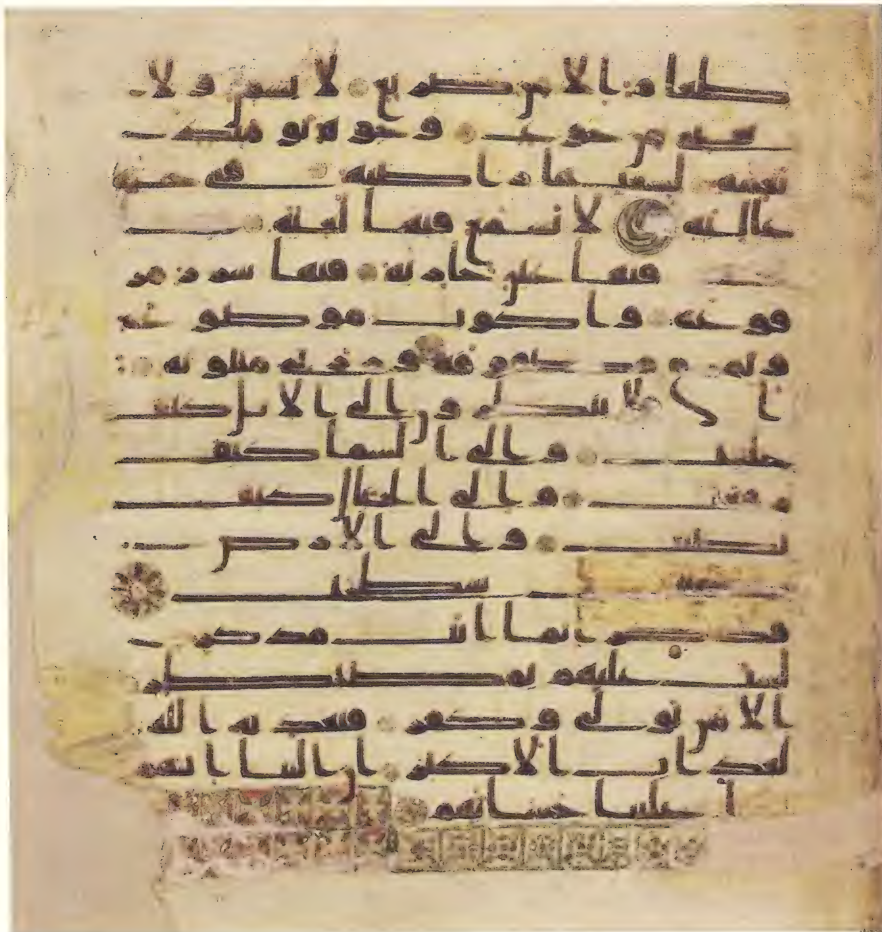 طعام الا من ضريع لا يسمن ولا
يغني من جوع وجوه يومئذ
ناعمة لسعيها راضية في جنة
عالية لا تسمع فيها لغية
فيها عين جارية فيها سرر مر
فوعة واكواب موضوعة
ونمرق مصفوفة وزربي مبثوثة
افلا ينظرون الى الابل كيف
خلقت والى السما كيف
رفعت والى الجبال كيف
نصبت والى الارض
كيف سطحت
فذكر انما انت مذكر
لست عليهم بمصيطر
الا من تولى وكفر فيعذبه الله
لعذاب الاكبر ان الينا ايابهم
علينا حسابهم